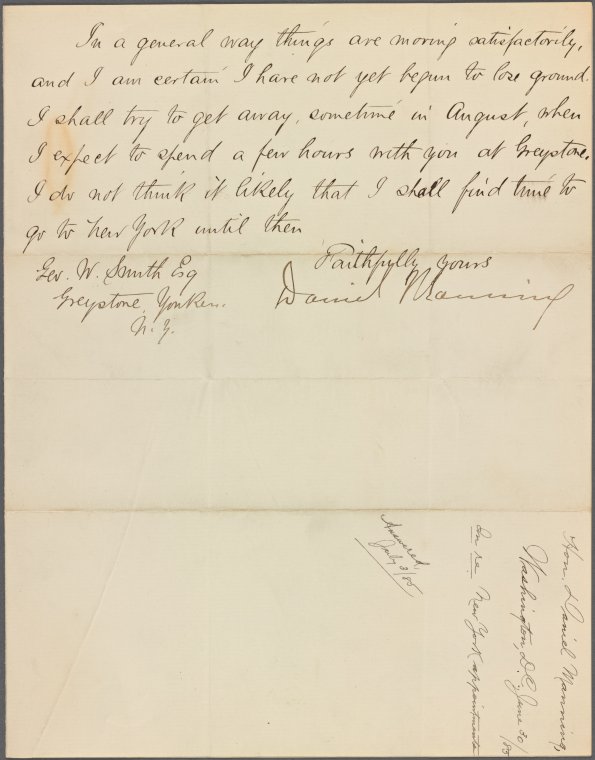 In a general way things are moving satisfactorily,
and I am certain I have not yet begun to lose ground.
I shall try to get away, sometime in August, when
I expect to spend a few hours with you at Greystone.
I do not think it likely that I shall find time to
go to New York until then
Faithfully yours
Daniel Manning
Geo. W. Smith Esq
Greystone, Yonkers.
N.Y.
Answered,
July 3/85
Hon. Daniel Manning,
Washington, D.C. June 30/85
In re. New York appointments